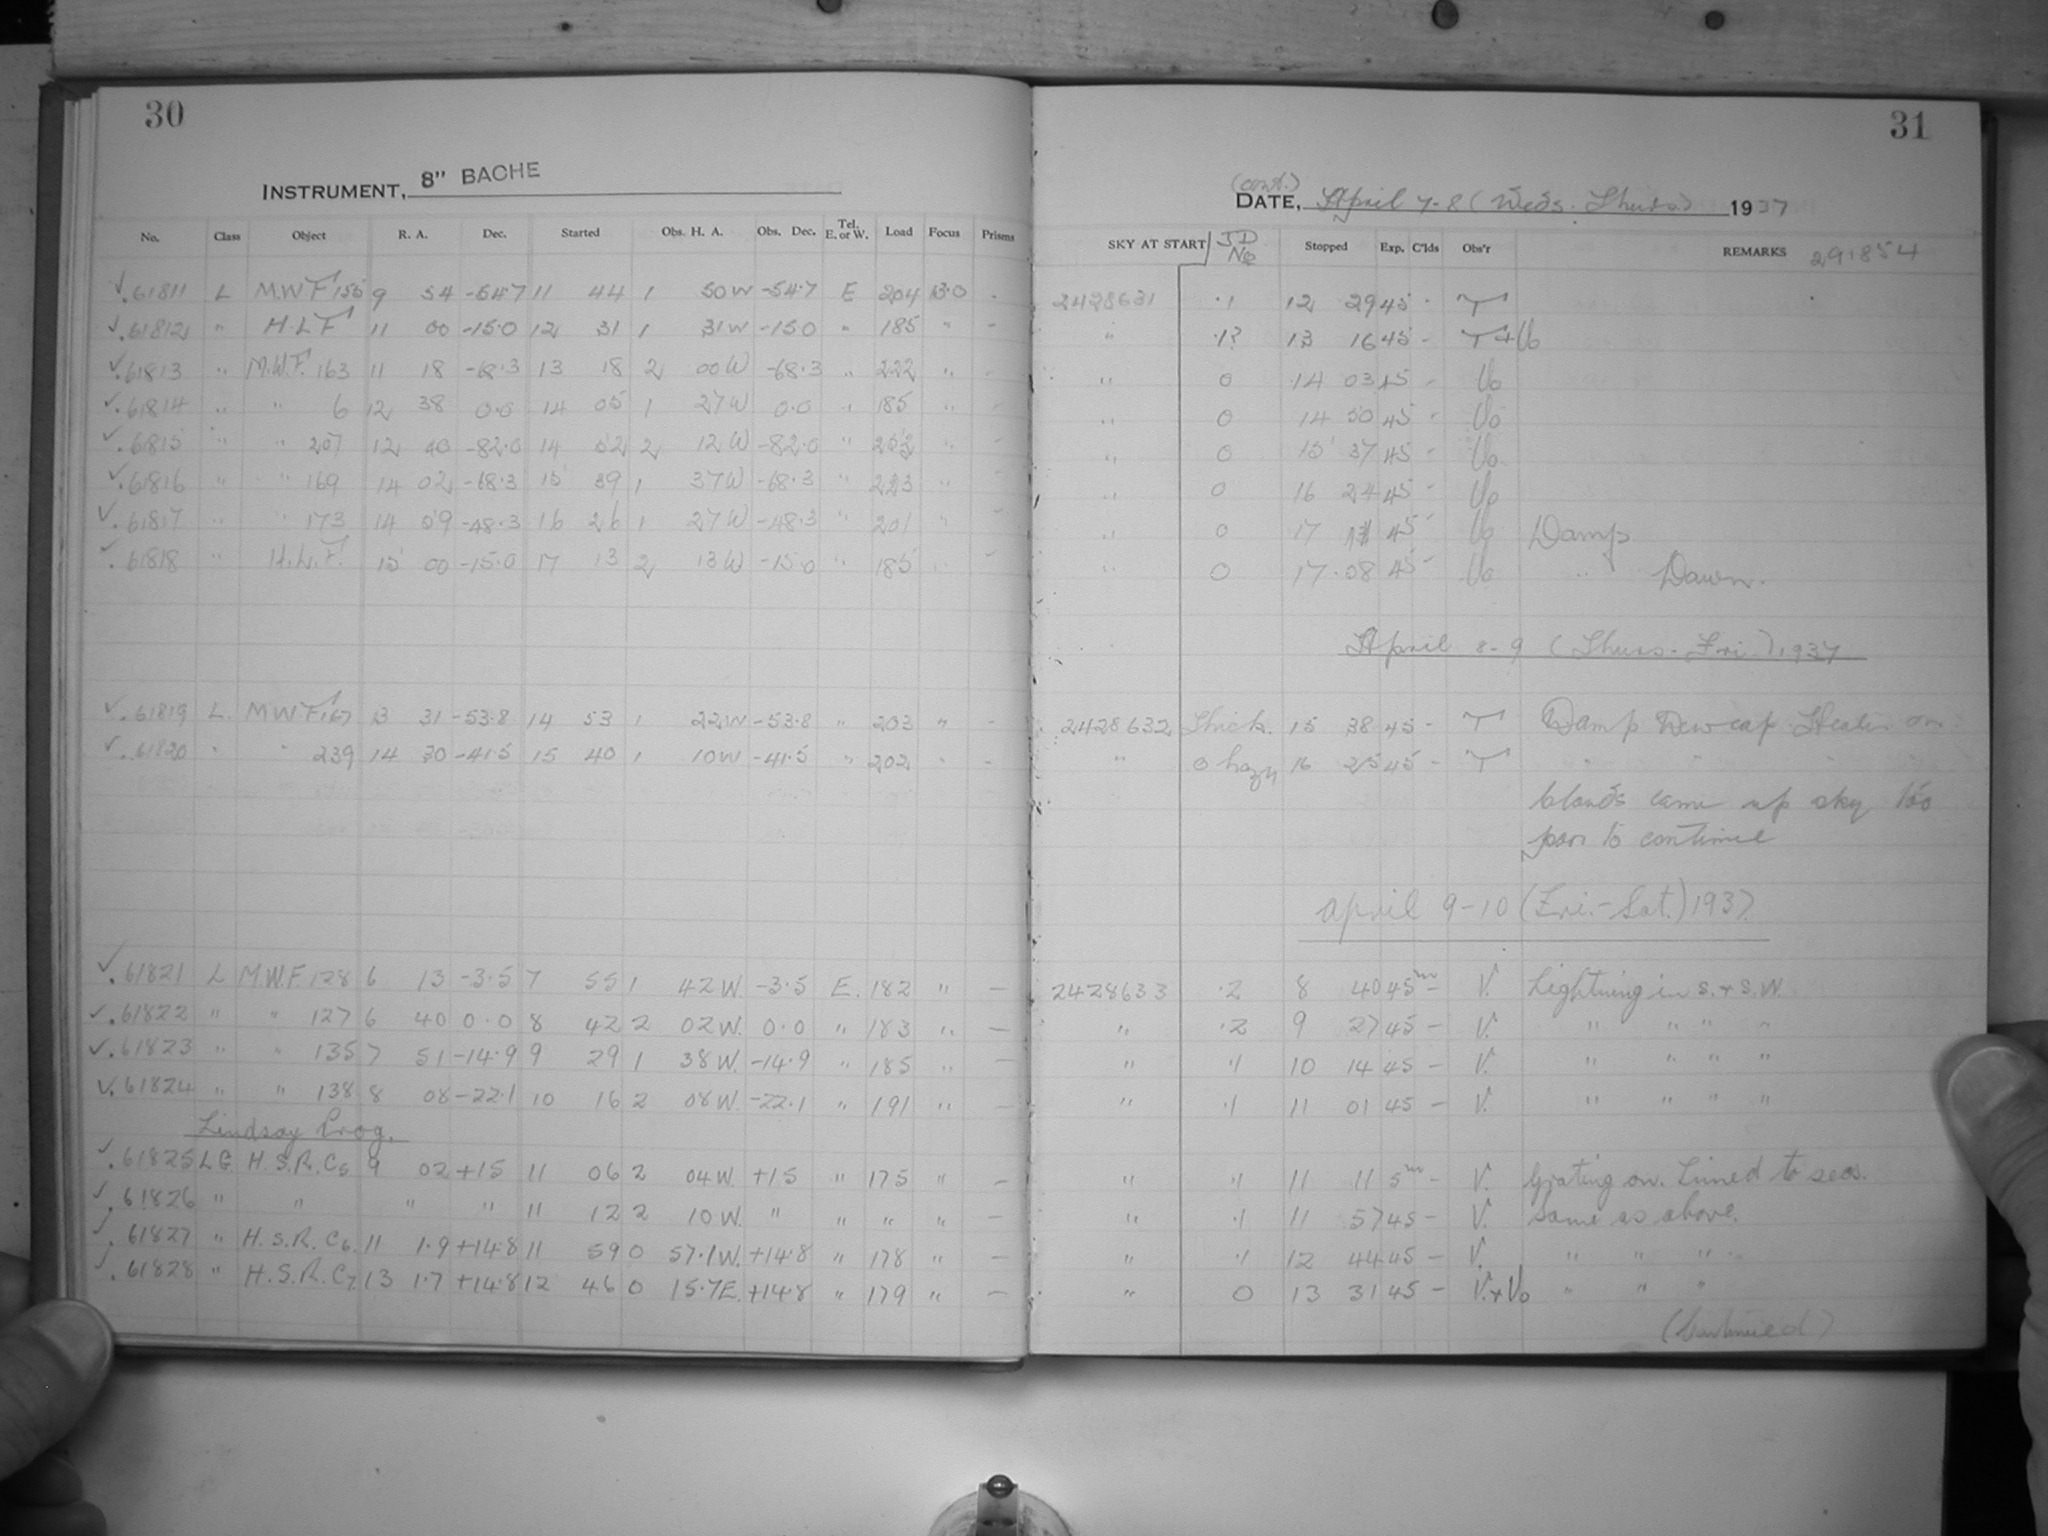 30
INSTRUMENT, 8" BACHE
No. Class Object R. A. Dec. Started Obs. H. A. Obs. Dec. Tel. E. or W. Load Focus Prisms
✓. 61811 L M.W.F 155 9 54 -54.7 11 44 1 50W -54.7 E 204 13.0 -
✓. 61812 " H.L.F 11 00 -15.0 12 31 1 31W -15.0 " 185 " -
✓. 61813 " M.W.F. 163 11 18 -68.3 13 18 2 00W -68.3 " 222 " -
✓. 61814 " " 6 12 38 0.0 14 05 1 27W 0.0 " 185 " -
✓. 61815 " " 207 12 40 -82.0 14 52 2 12W -82.0 " 252 " -
✓. 61816 " " 169 14 02 -68.3 15 39 1 37W -68.3 " 223 " -
✓. 61817 " " 173 14 59 -48.3 16 26 1 27W -48.3 " 201 " -
✓. 61818 " H.L.F. 15 00 -15.0 17 13 2 13W -15.0 " 185 " -
✓. 61819 L. M.W.F 167 13 31 -53.8 14 53 1 22W -53.8 " 203 " -
✓. 61820 " " 239 14 30 -41.5 15 40 1 10W -41.5 " 202 " -
✓. 61821 L M.W.F. 128 6 13 -3.5 7 55 1 42W. -3.5 E. 182 " -
✓. 61822 " " 127 6 40 0.0 8 42 2 02W. 0.0 " 183 " -
✓. 61823 " " 135 7 51 -14.9 9 29 1 38W. -14.9 " 185 " -
✓. 61824 " " 138 8 08 -22.1 10 16 2 08W. -22.1 " 191 " -
Lindsay Prog.
✓. 61825 LG H.S.R. C5 9 02 +15 11 06 2 04W. +15 " 175 " -
✓. 61826 " " " " 11 12 2 10W. " " " " -
✓. 61827 " H.S.R. C6. 11 1.9 +14.8 11 59 0 57.1W. +14.8 " 178 " -
✓. 61828 " H.S.R. C7. 13 1.7 +14.8 12 46 0 15.7E. +14.8 " 179 " -
31
(cont.)
DATE, April 7-8 (Weds. Thurs) 1937
SKY AT START JD No Stopped Exp. C'lds Obs'r REMARKS 291854
2428631 .1 12 29 45 - T
" .1? 13 16 45 - T+Vo
" 0 14 03 45 - Vo
" 0 14 50 45 - Vo
" 0 15 37 45 - Vo
" 0 16 24 45 - Vo
" 0 17 11 45 - Vo Damp
" 0 17.58 45 - Vo " Dawn.
April 8-9 (Thurs-Fri) 1937
2428632 Thick. 15 38 45 - T Damp Dew cap Heater on
" 0 hazy 16 25 45 - T " " " "
Clouds came up sky too
poor to continue
April 9-10 (Fri.-Sat.) 1937
2428633 .2 8 40 45m - V. Lightning in S. + S.W.
" .2 9 27 45 - V. " " " "
" .1 10 14 45 - V. " " " "
" .1 11 01 45 - V. " " " "
" .1 11 11 5m - V. Grating on. Timed to secs.
" .1 11 57 45 - V. Same as above.
" .1 12 44 45 - V. " " "
" 0 13 31 45 - V.+Vo " " "
(Continued)